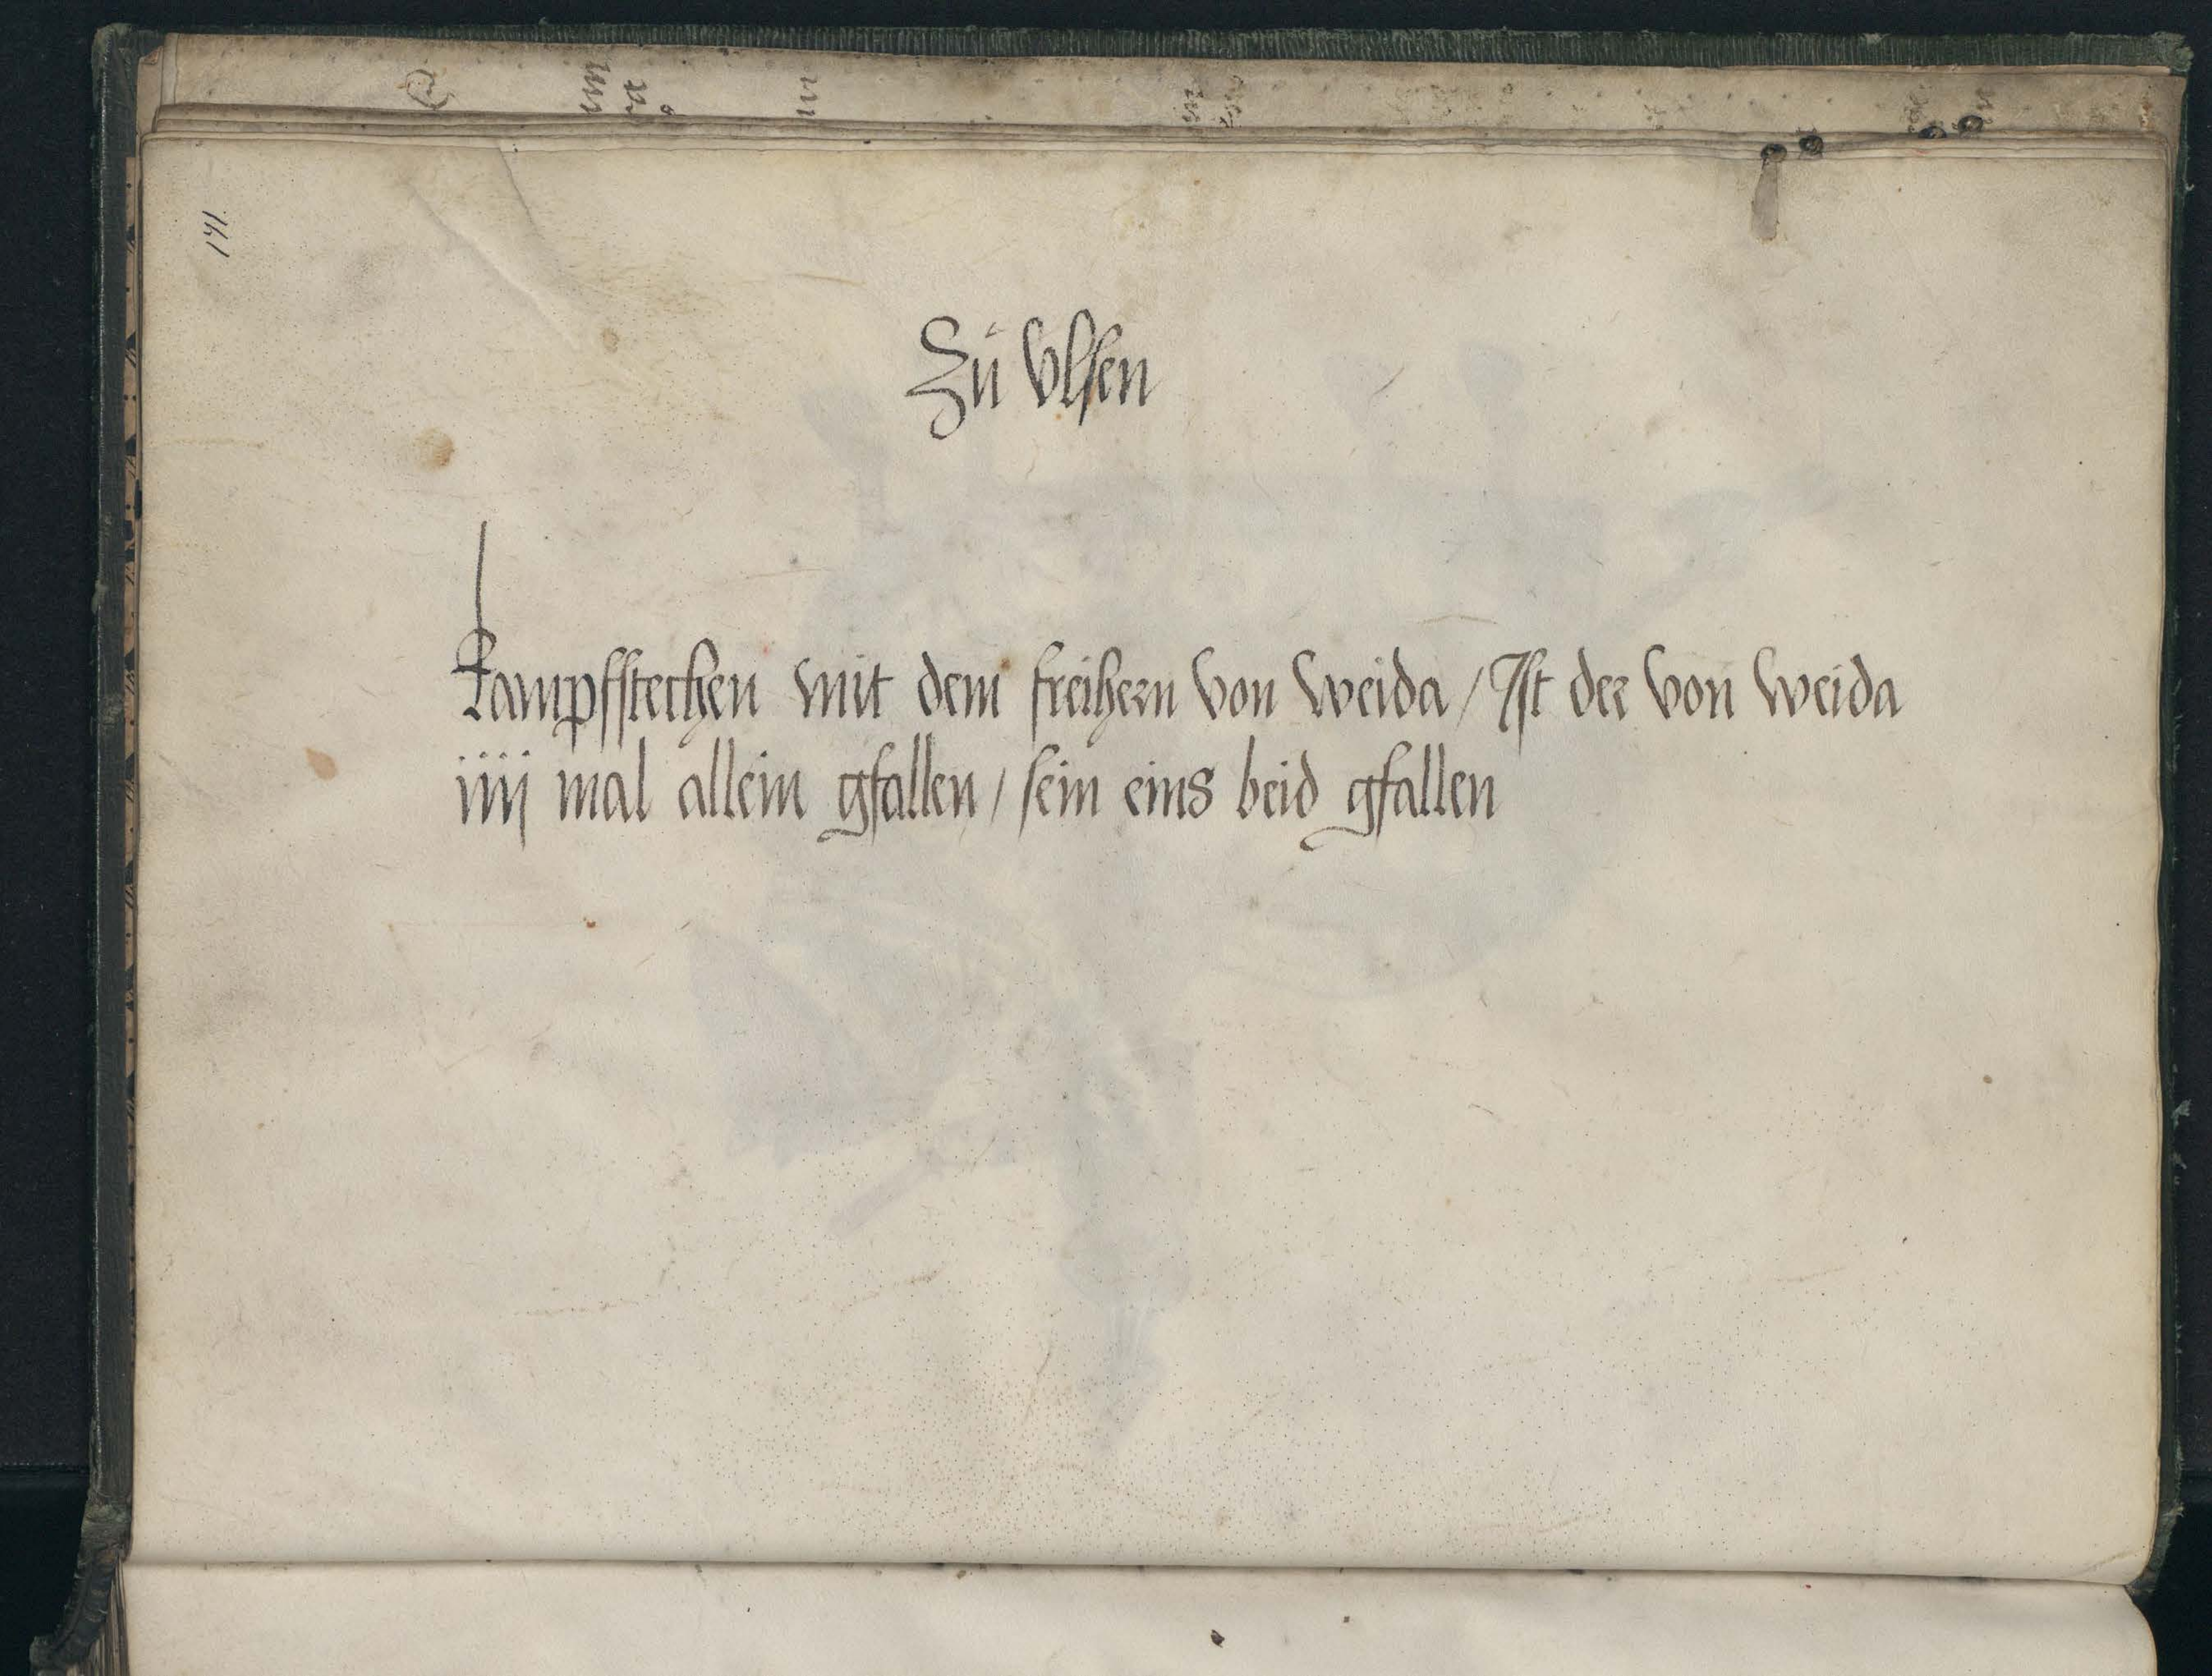 141
Zů Vlsen
kampfstechen mit dem freihern von weida / Ist der von weida
iiij mal allein gfallen / sein eins beid gfallen